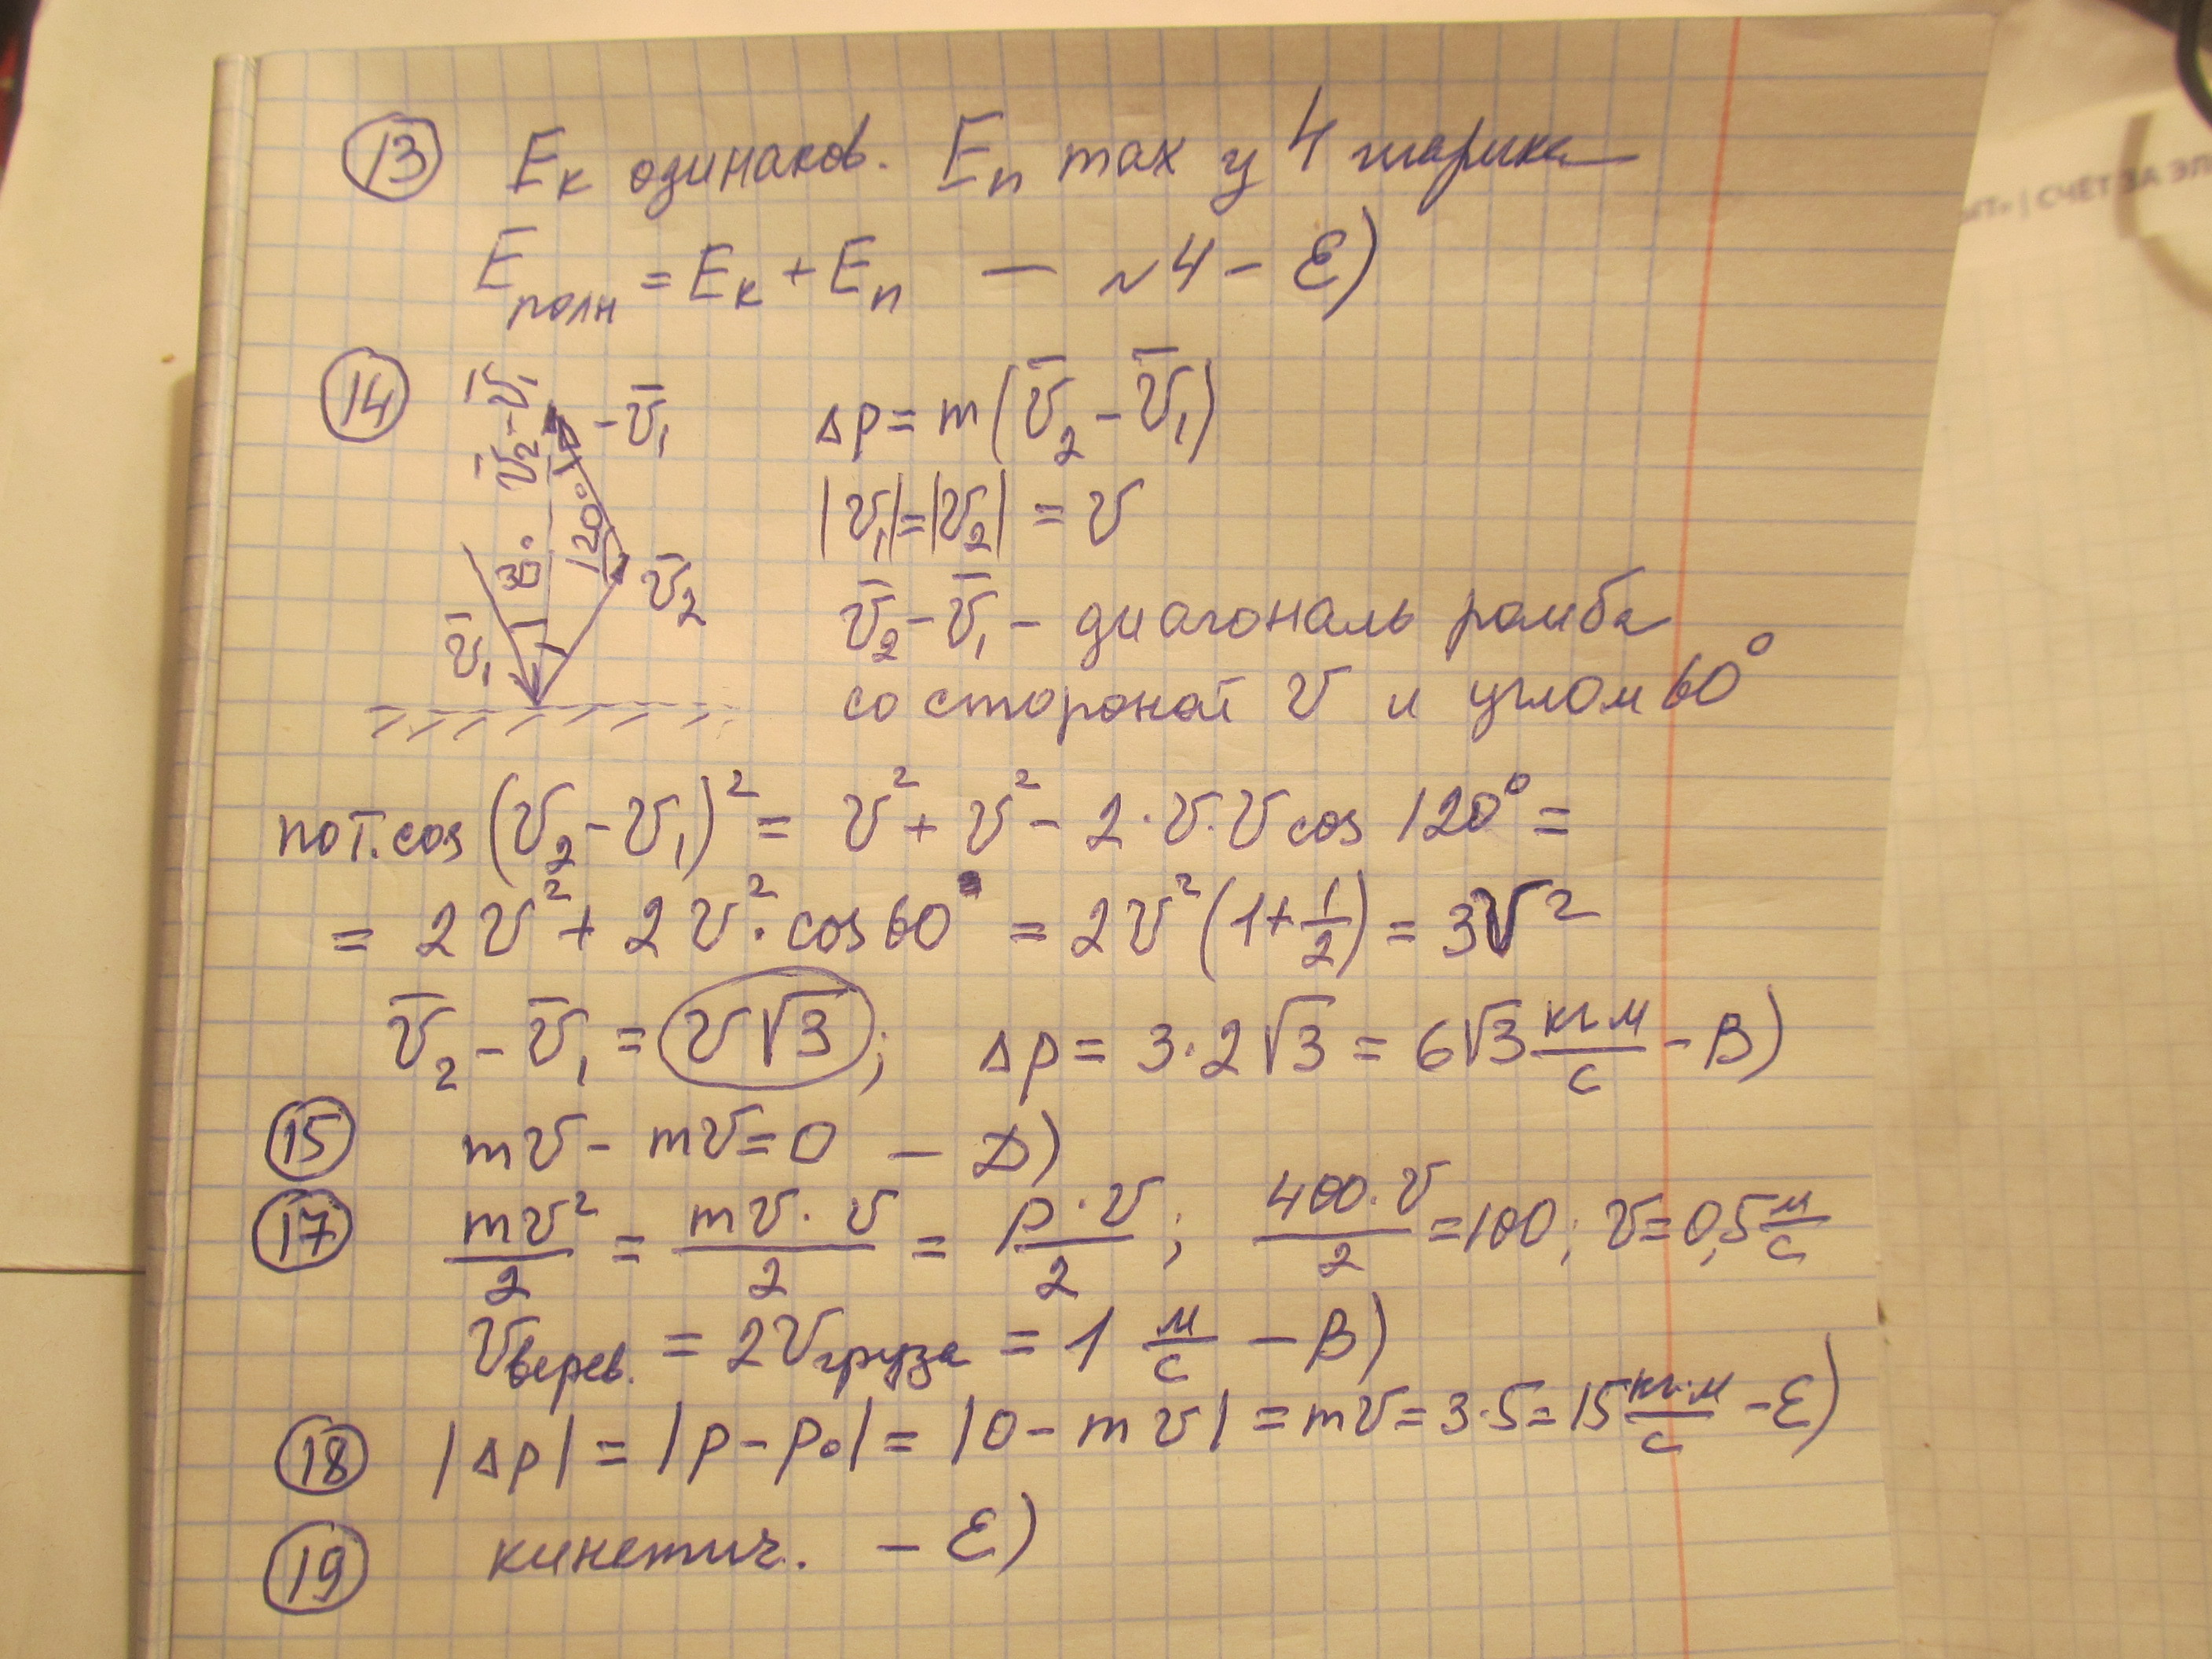 13 Eк одинаков. Eп max у 4 шарика
Eполн = Eк + Eп — ~4 - E)
14 v̄₂ - v̄₁ -v̄₁ Δp = m(v̄₂ - v̄₁)
120° 30° |v₁| = |v₂| = v
v̄₁ v̄₂ v̄₂ - v̄₁ - диагональ ромба
со стороной v и углом 60°
по т. cos (v₂ - v₁)² = v² + v² - 2·v·v cos 120° =
= 2v² + 2v²·cos 60° = 2v²(1 + 1/2) = 3v²
v̄₂ - v̄₁ = v√3; Δp = 3·2√3 = 6√3 кг·м/с - B)
15 mv - mv = 0 - D)
17 mv²/2 = mv·v/2 = p·v/2; 400·v/2 = 100; v = 0,5 м/с
vверев. = 2vгруза = 1 м/с - B)
18 |Δp| = |p - p₀| = |0 - mv| = mv = 3·5 = 15 кг·м/с - E)
19 кинетич. - E)
СЧЁТ ЗА ЭЛ